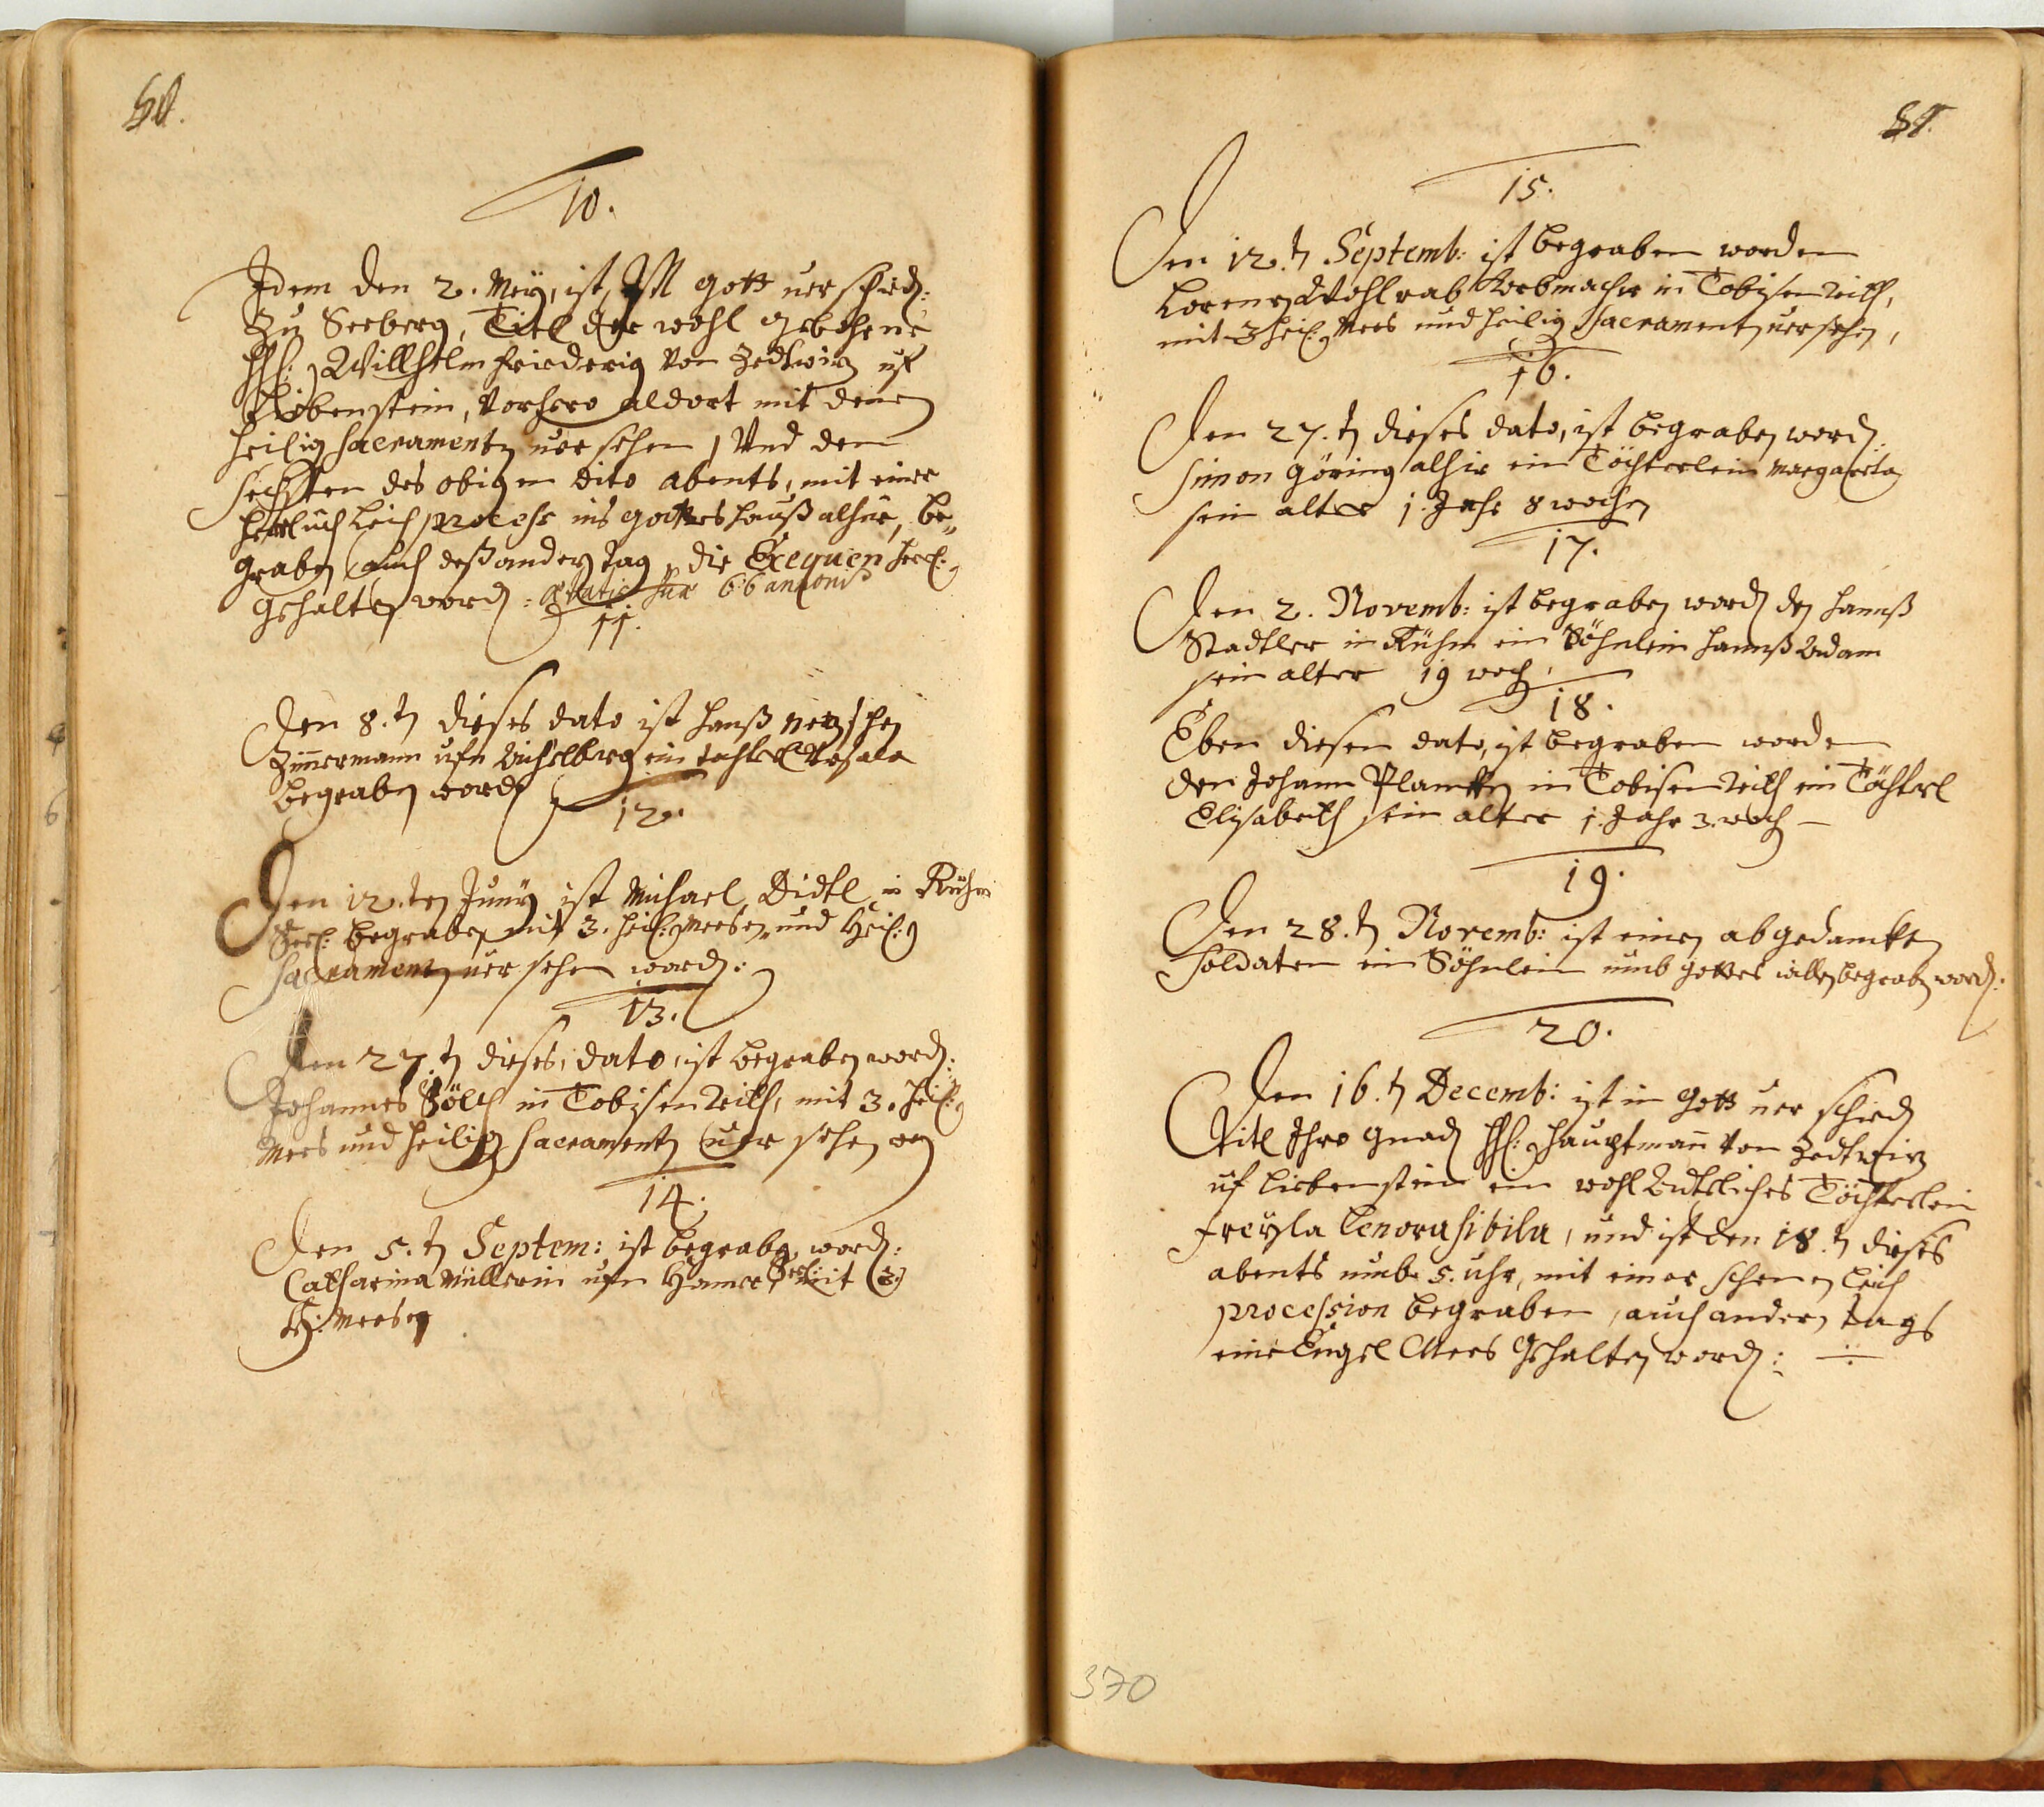 60.
10.
Idem den 2. Meÿ, ist, In Gott verschied:
Zu Seeberg, Titl der wohl gebohrne
H: Willhelm Friederig von Zedtwiz uf
Liebenstein, vorhero aldort mit denen
heilig Sacramentn versehen, Und den
sechsten des obigen dito abents, mit einer
herrlich Leich process ins gotteshauß alhir, be„
graben auch deß andern Tag, die Exequien
gehalten word: ætatis suæ 66 annorū
11.
Den 8.tn dieses dato ist hanß
Zimmermann ufn ein
begraben word
12.
Den 12.ten Juny ist Michael Didtl in Kühn
Seel: begraben mit 3. heil: Meesen und Heil:
Sacrament versehen word:
13.
Den 27.tn dieses, dato, ist begraben word:
Johannes Sölch in Tobisenreith, mit 3. heil:
Mees und heilig Sacramentn versehen
14.
Den 5.tn Septem: ist begraben, word:
Catharina Müllerin ufn Hamer Seel: mit 3
H: Meesen
61.
15.
Den 12.tn Septemb: ist begraben worden
Lorenz Wohlrab Korbmacher in Tobisenreith,
mit 3 heil: Mees und heilig Sacramentn versehen,
16.
Den 27.tn dieses dato, ist begraben word
Simon Göring alhir ein Töchterlein Margareta
sein alter 1. Jahr 8 wochen
17.
Den 2. Novemb: ist begraben word den hannß
Stadtler in Kühn ein Söhnlein hannß Adam
sein alter 19 woch,
18.
Eben diesen dato, ist begraben worden
den Johann Planckn in Tobisenreith ein Töchterl
Elisabeth sein alter 1. Jahr 3. woch
19.
Den 28.tn Novemb: ist einen abgedanckten
Soldaten ein Söhnlein umb gottes willen begraben word:
20.
Den 16.tn Decemb: ist in Gott verschied
Titl Ihro Gnad H: Hauptmañ von Zedtwiz
uf Liebenstein ein wohl Töchterlein
Freÿla Lenora Sibila, und ist den 18.tn dieses
abents umb 5. uhr, mit einer schenen Leich
procession begraben, auch andern tags
eine Engel Mees gehalten word:
370